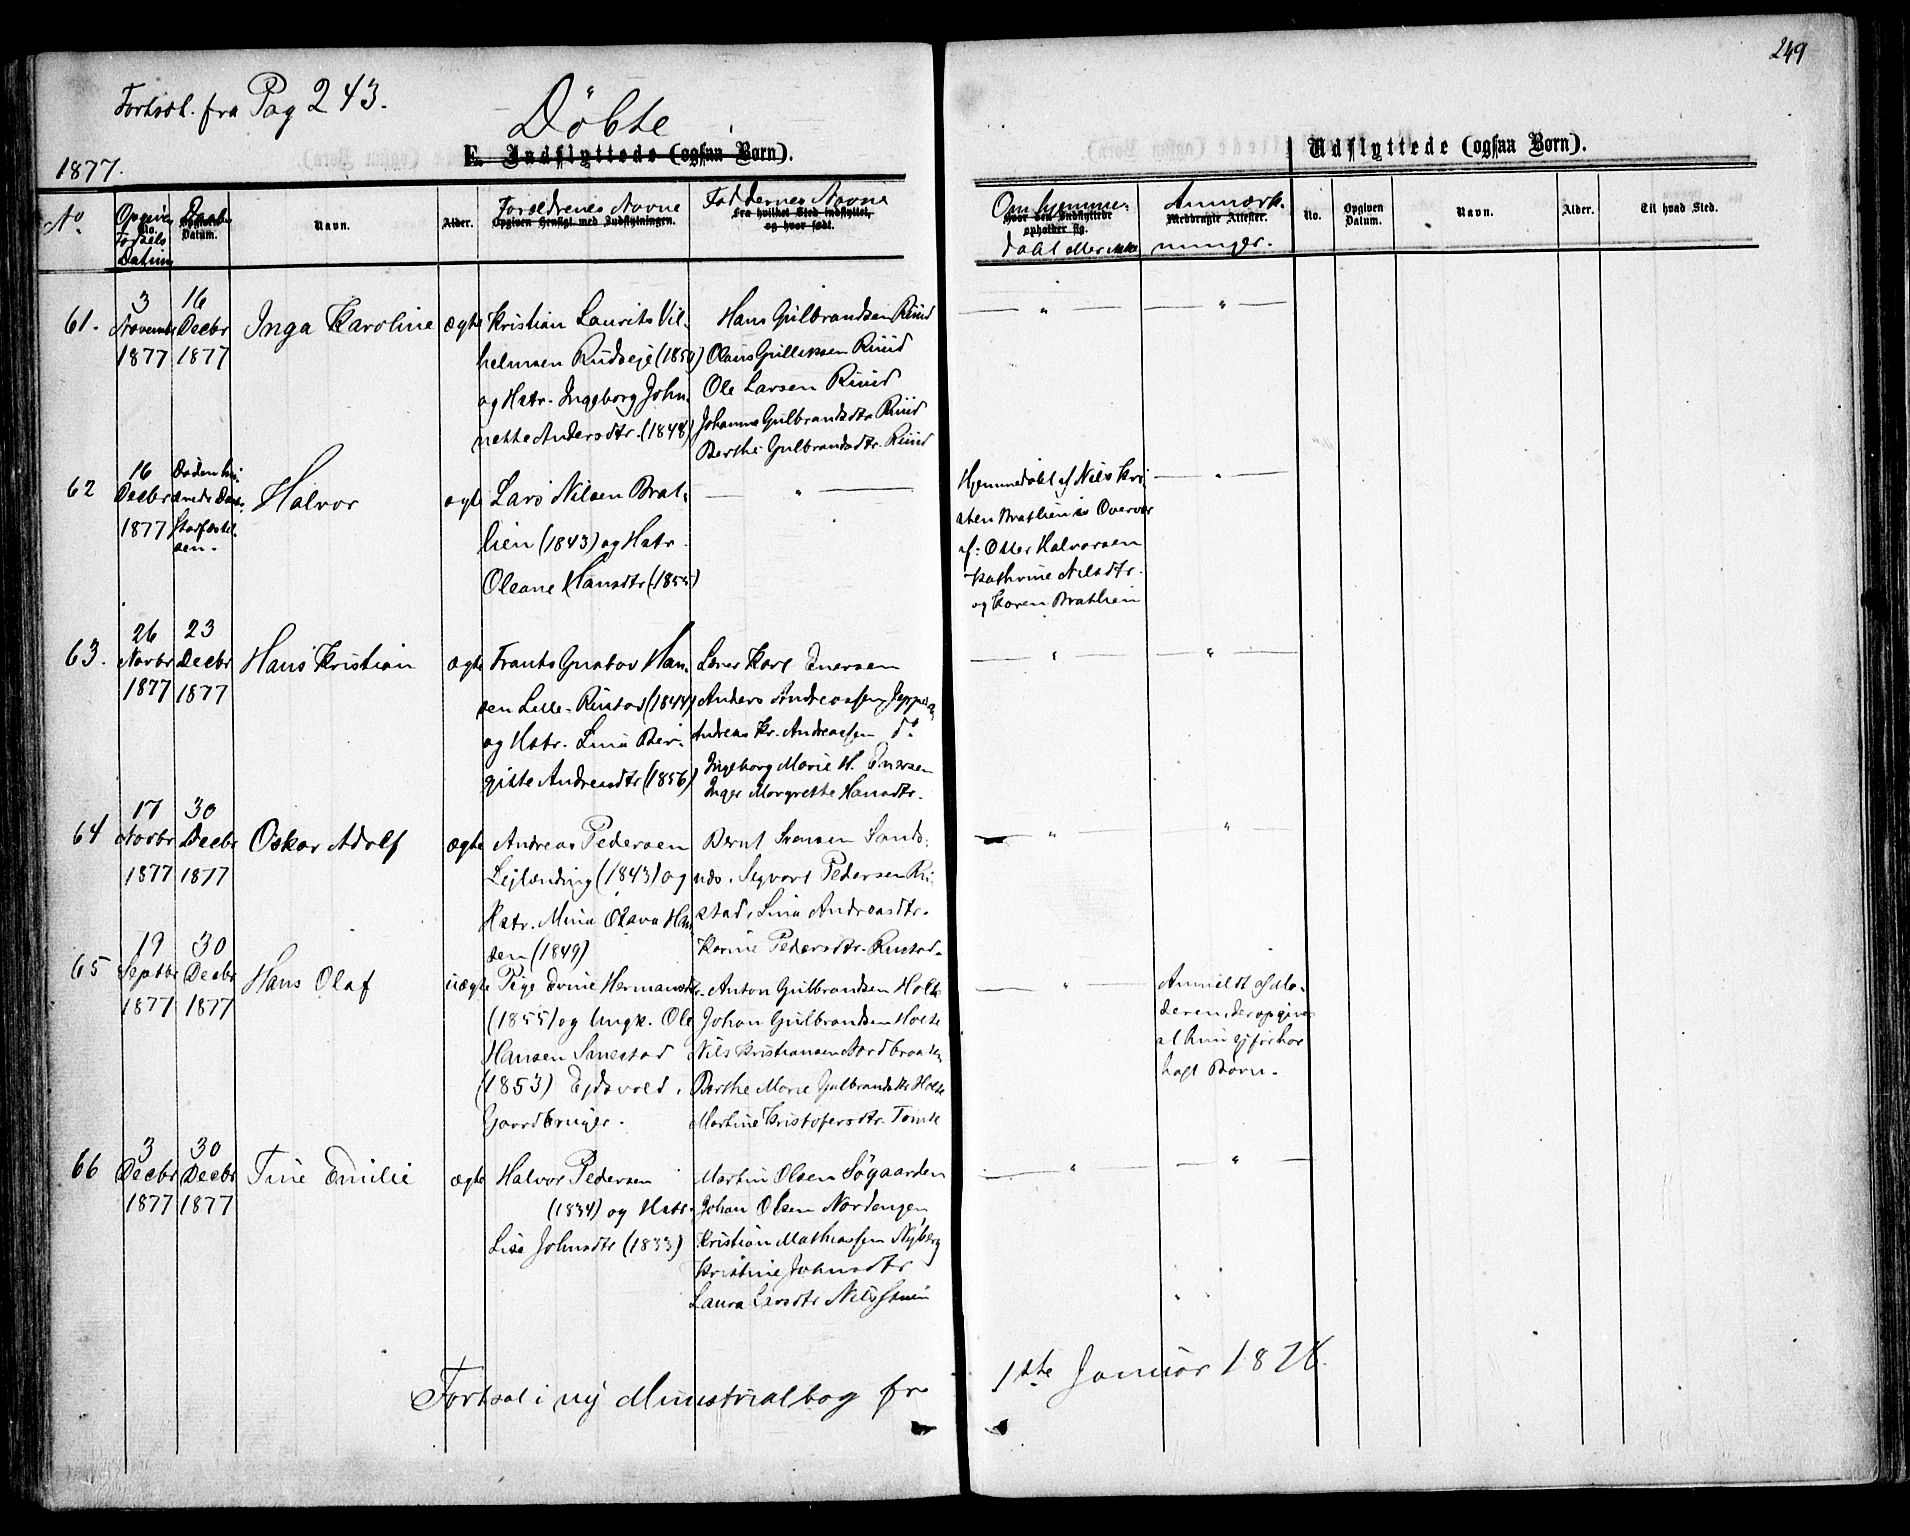 249
Fortsat. fra Pag 243.
Döbte
E. Indflyttede (ogsaa Børn).
Udflyttede (ogsaa Børn).
1877.
No
Opgiven Fødsels Datum
No.
Daabs Datum.
Navn.
Alder.
Forældrenes Navne
Opgiven Hensigt med Indflytningen.
Faddernes Navne
Fra hvilket Sted indflyttet, og hvor født.
Om hjemmedøbt eller ikke
Hvor den Indflyttede opholder sig.
Anmærkninger.
Medbragte Attester.
No.
Opgiven Datum.
Navn.
Alder.
Til hvad Sted.
61.
3 Novembr 1877
16 Decbr 1877
Inga Karoline
ægte
Kristian Laurits Vil-
helmsen Rudseje (1850)
og Hstr. Ingeborg John-
nette Andersdtr. (1848)
Hans Gulbrandsen Ruud
Olaus Gulliksen Ruud
Ole Larsen Ruud
Johanne Gulbrandsdtr Ruud
Berthe Gulbrandsdtr. Ruud
62
16 Decbr 1877
Halvor
ægte
Lars Nilsen Brat-
lien (1843) og Hstr.
Oleane Hansdtr (1855)
Hjemmedøbt af Nils Kri-
sten Bratlien is Overvær
af: Otter Halvorsen
Kathrine Nilsdtr.
og Karen Bratlien
63.
26 Novbr 1877
23 Decbr 1877
Hans Kristian
ægte
Frants Gustav Han-
sen Lille-Rustad (1844)
og Hstr. Lina Ber-
gitte Andreasdtr (1856)
Lærer Karl Enersen
Anders Andreassen
Andreas Kr. Andreassen do
Ingeborg Marie H. Enersen
Inger Margrethe Hansdtr.
64
17 Novbr 1877
30 Decbr 1877
Oskar Adolf
ægte
Andreas Pedersen
Lejlænding (1843) og
Hstr. Mina Olava Han
sen (1849)
Bernt Svensen Sands-
næs. Sigvart Pedersen Ru-
stad, Lina Andreasdtr.
Karine Pedersdtr. Rustad.
65
19 Septbr 1877
30 Decbr 1877
Hans Olaf
uægte
Pige Evine Hermansdtr.
(1855) og Ungk. Ole
Hansen Smestad
(1853) Ejdsvold.
Gaardbruger.
Anton Gulbrandsen Holte
Johan Gulbrandsen Holte
Nils Kristiansen Nordbraaten
Berthe Marie Gulbrandsdtr Holte
Martine Kristofersdtr. Tomte
Anmeldt af Mo-
deren, der opgiver
at hun ej før har
havt Børn.
66
3 Decbr 1877
30 Decbr 1877
Tine Emilie
ægte
Halvor Pedersen
(1834) og Hstr.
Lise Johnsdtr (1833)
Martin Olsen Søgaarden
Johan Olsen Nordengen
Kristian Mathiassen Nyberg
Kristine Johnsdtr
Laura Larsdtr
Fortsat i ny Ministrialbog fr
1ste Januar 1878.